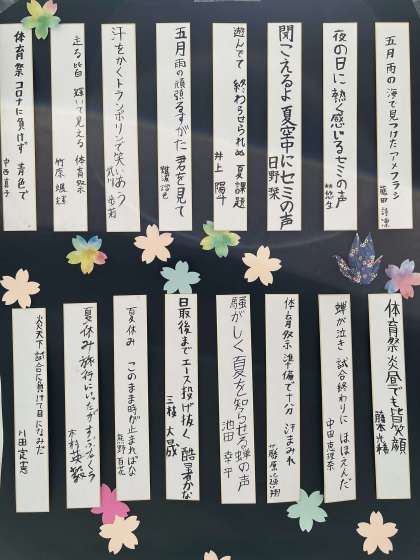 五月雨の海で見つけたアメフラシ
夜の日に熱く感じるセミの声
悠生
聞こえるよ夏空中にセミの声
日野 栞
遊んでて 終わらせられぬ 夏課題
井上 陽斗
五月雨の頑張るすがた君を見て
汗をかくトランポリンで笑いあう
走る皆 輝いて見える 体育祭
竹原 颯輝
体育祭コロナに負けず 青色で
中西 直子
体育祭炎昼でも皆笑顔
藤本 光稀
蝉が泣き 試合終わりに ほほえんだ
中田 恵理奈
体育祭 準備で十分 汗まみれ
騒がしく夏を知らせる蝉の声
池田 幸平
日最後までエース投げ抜く 酷暑かな
三枝 大晟
夏休み このまま時が止まればな
熊野 百花
夏休み旅行にいったがすぶぬくう
木村 英毅
炎天下試合に負けて目になみだ